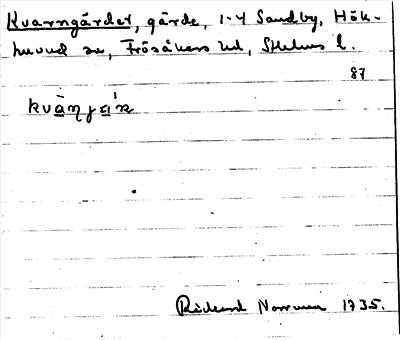 Kvarngärdet, gärde, 1-4 Sandby, Hök-
huvud sn, Frösåkers hd, Sthlms l.
87
Rickard Norrman 1935.